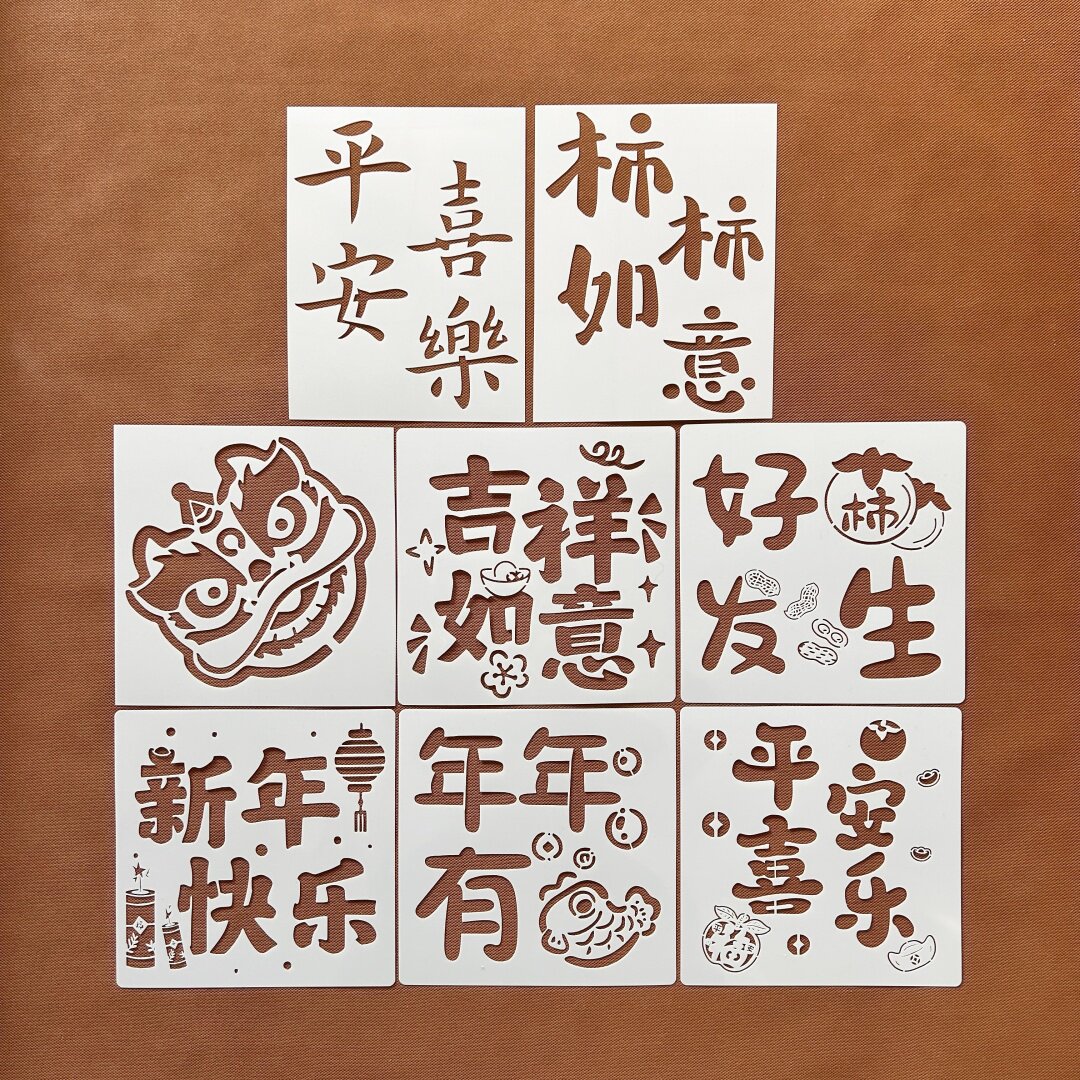 平安
喜樂
柿柿
如意
吉祥
如意
好柿
发生
新年
快乐
年年
有
平安
喜乐
福